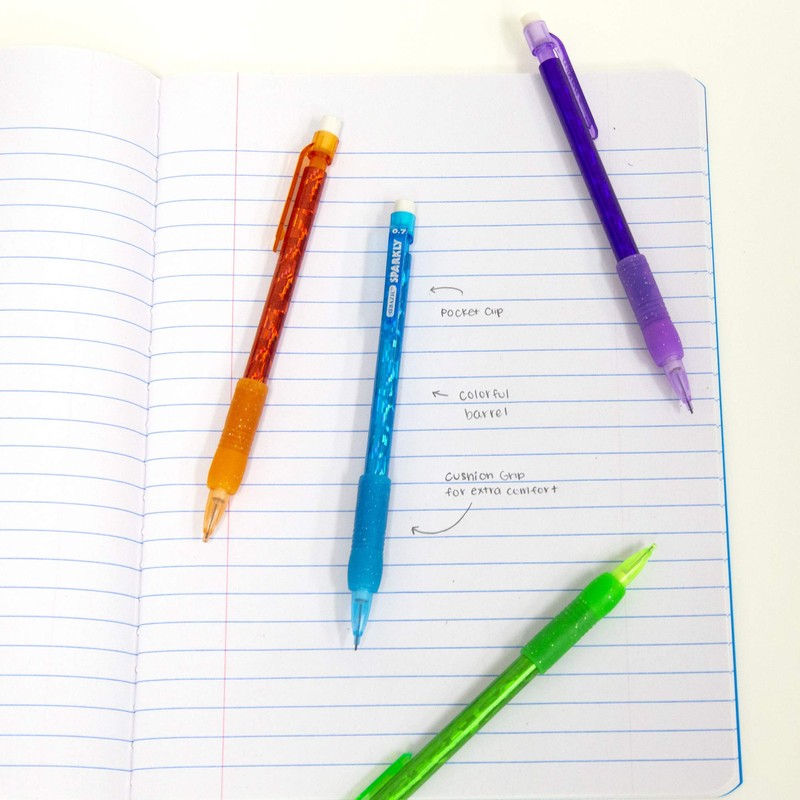 0.7
SPARKLY
pocket clip
colorful
barrel
cushion Grip
for extra comfort